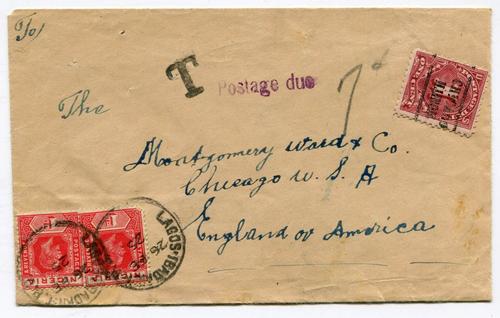 To/
T
Postage due
7d
The
Montgomery Ward & Co.
Chicago U.S.A
England or America
LAGOS
26
NIGERIA